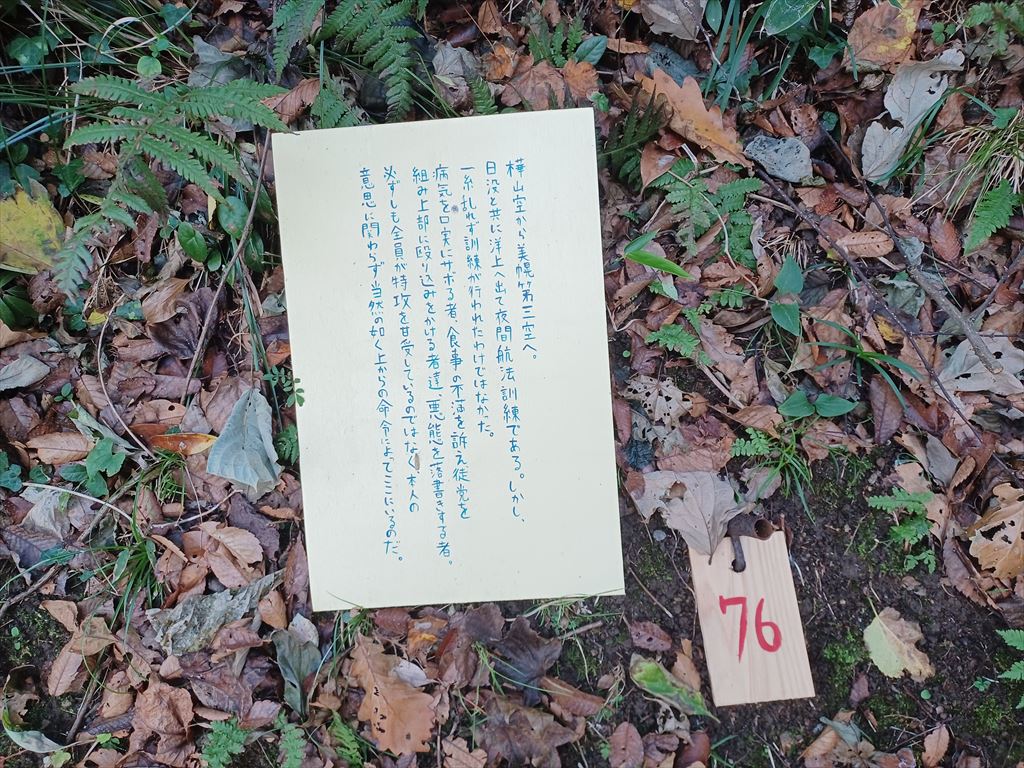 樺山空から美幌第三空へ。
日没と共に洋上へ出て夜間航法訓練である。しかし、
一糸乱れず訓練が行われたわけではなかった。
病気を口実にサボる者、食事の不満を訴え徒党を
組み上部に殴り込みをかける者達、悪態を落書きする者。
必ずしも全員が特攻を甘受しているのではなく本人の
意思に関わらず当然の如く上からの命令によってここにいるのだ。
76